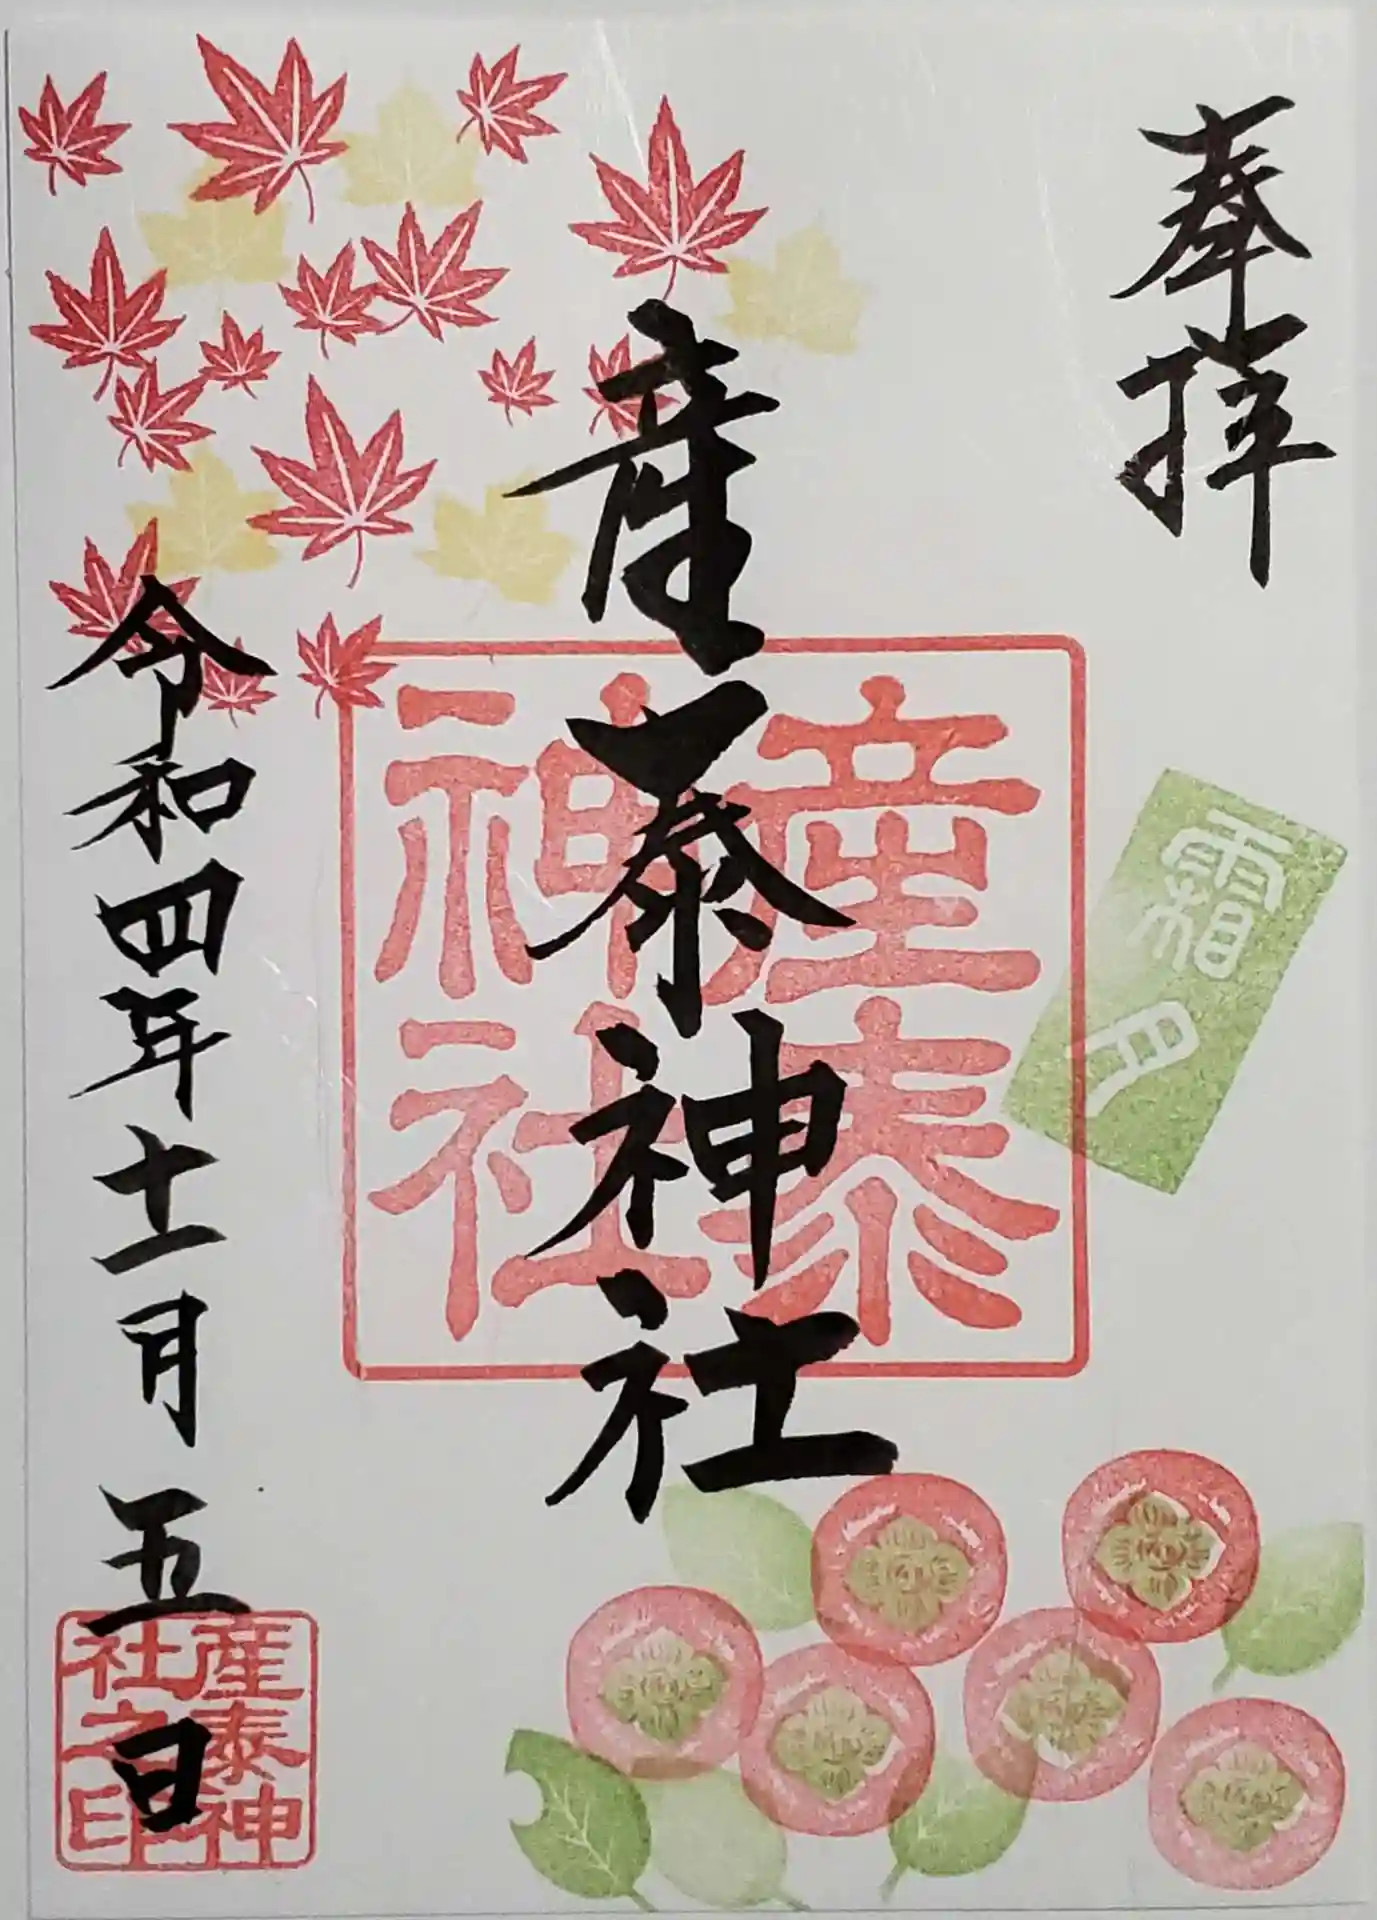 奉拝
霜月
産泰神社
産泰
神社
令和四年十一月五日
産泰神
社之印